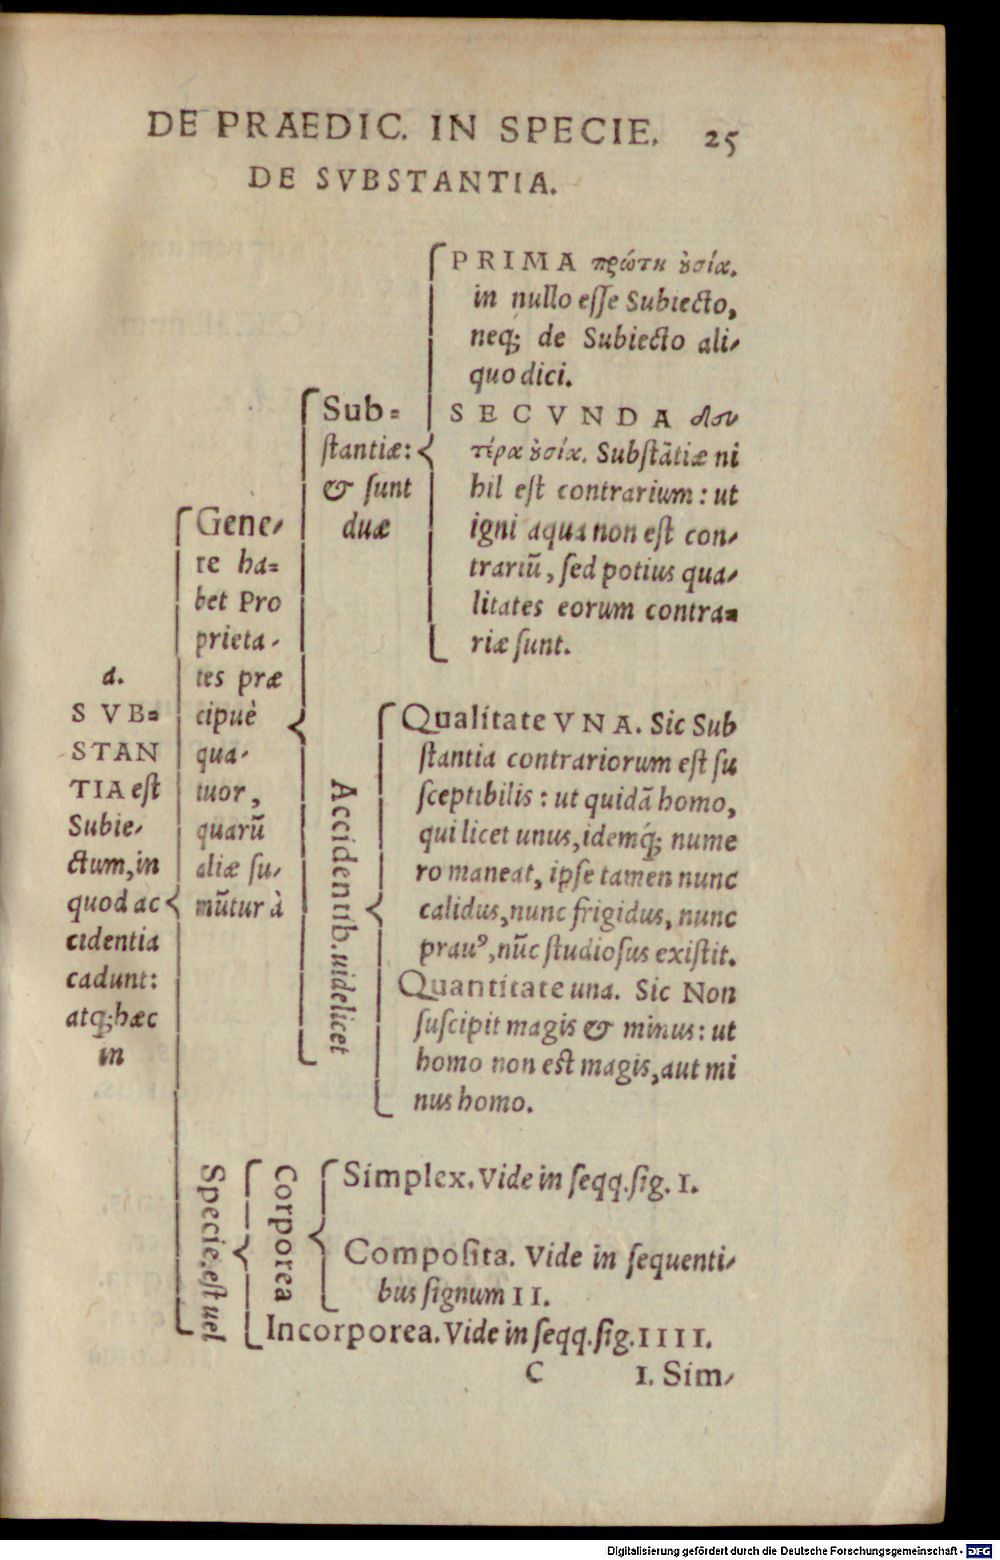 DE PRAEDIC. IN SPECIE. 25
DE SVBSTANTIA.
a.
S VB=
STAN
TIA est
Subie-
ctum, in
quod ac
cidentia
cadunt:
atq; hæc
in
Gene-
re ha=
bet Pro
prieta-
tes præ
cipuè
qua-
tuor,
quarũ
aliæ su-
mũtur à
Sub=
stantiæ:
& sunt
duæ
PRIMA πρώτη ȣσία.
in nullo esse Subiecto,
neq; de Subiecto ali-
quo dici.
SECVNDA δευ
τέρα ȣσία. Substãtiæ ni
hil est contrarium: ut
igni aqua non est con-
trariũ, sed potius qua-
litates eorum contra=
riæ sunt.
Accidentib. uidelicet
Qualitate VNA. Sic Sub
stantia contrariorum est su
sceptibilis: ut quidã homo,
qui licet unus, idemq́; nume
ro maneat, ipse tamen nunc
calidus, nunc frigidus, nunc
prauꝰ, nũc studiosus existit.
Quantitate una. Sic Non
suscipit magis & minus: ut
homo non est magis, aut mi
nus homo.
Specie. est uel
Corporea
Simplex. Vide in seqq. sig. I.
Composita. Vide in sequenti-
bus signum II.
Incorporea. Vide in seqq. sig. IIII.
C I. Sim-
Digitalisierung gefördert durch die Deutsche Forschungsgemeinschaft - DFG